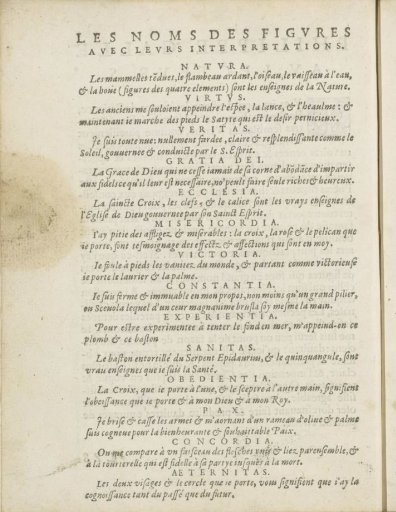 LES NOMS DES FIGVRES
AVEC LEVRS INTERPRETATIONS.
NATVRA.
Les mammelles tẽdues, le flambeau ardant, l'oiseau, le vaisseau à l'eau,
& la boüe (figures des quatre elements) sont les enseignes de la Nature.
VIRTVS.
Les anciens me souloient appeindre l'espee, la lance, & l'heaulme: &
maintenant ie marche des pieds le Satyre qui est le desir pernicieux.
VERITAS.
Je suis toute nue: nullement fardee, claire & resplendissante comme le
Soleil, gouuernee & conduicte par le S. Esprit.
GRATIA DEI.
La Grace de Dieu qui ne cesse iamais de sa corne d'abõdãce d'impartir
aux fidelles ce qu'il leur est necessaire, no' peult faire seule riches & heureux.
ECCLESIA.
La saincte Croix, les clefs, & le calice sont les vrays enseignes de
l'Eglise de Dieu gouuernee par son Sainct Esprit.
MISERICORDIA.
I'ay pitie des affligez & miserables: la croix, la rose & le pelican que
ie porte, sont tesmoignage des effectz & affections qui sont en moy.
VICTORIA.
Ie foule à pieds les vanitez du monde, & partant comme victorieuse
ie porte le laurier & la palme.
CONSTANTIA.
Ie suis ferme & immuable en mon propos, non moins qu'un grand pilier,
ou Sceuola lequel d'un cœur magnanime brusla soy mesme la main.
EXPERIENTIA.
Pour estre experimentee à tenter le fond en mer, m'appeind-on ce
plomb & ce baston
SANITAS.
Le baston entortillé du Serpent Epidaurin, & le quinquangule, sont
vrau enseignes que ie suis la Santé.
OBEDIENTIA.
La Croix, que ie porte à l'une, & le sceptre à l'autre main, signifient
l'obeissance que ie porte & à mon Dieu & à mon Roy.
PAX.
Je brise & casse les armes & m'aornant d'un rameau d'oliue & palme
suis cogneue pour la bienheurante & souhaittable Paix.
CONCORDIA.
On me compare à vn faisceau des flesches vnis & liez parensemble, &
à la tourterelle qui est fidelle à sa partye iusquès à la mort.
AETERNITAS.
Les deux visages & le cercle que ie porte, vous signifient que i'ay la
cognoissance tant du passé que du futur.